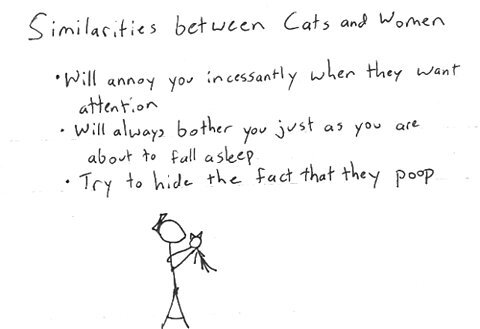 Similarities between Cats and Women
• Will annoy you incessantly when they want
attention
• Will always bother you just as you are
about to fall asleep
• Try to hide the fact that they poop